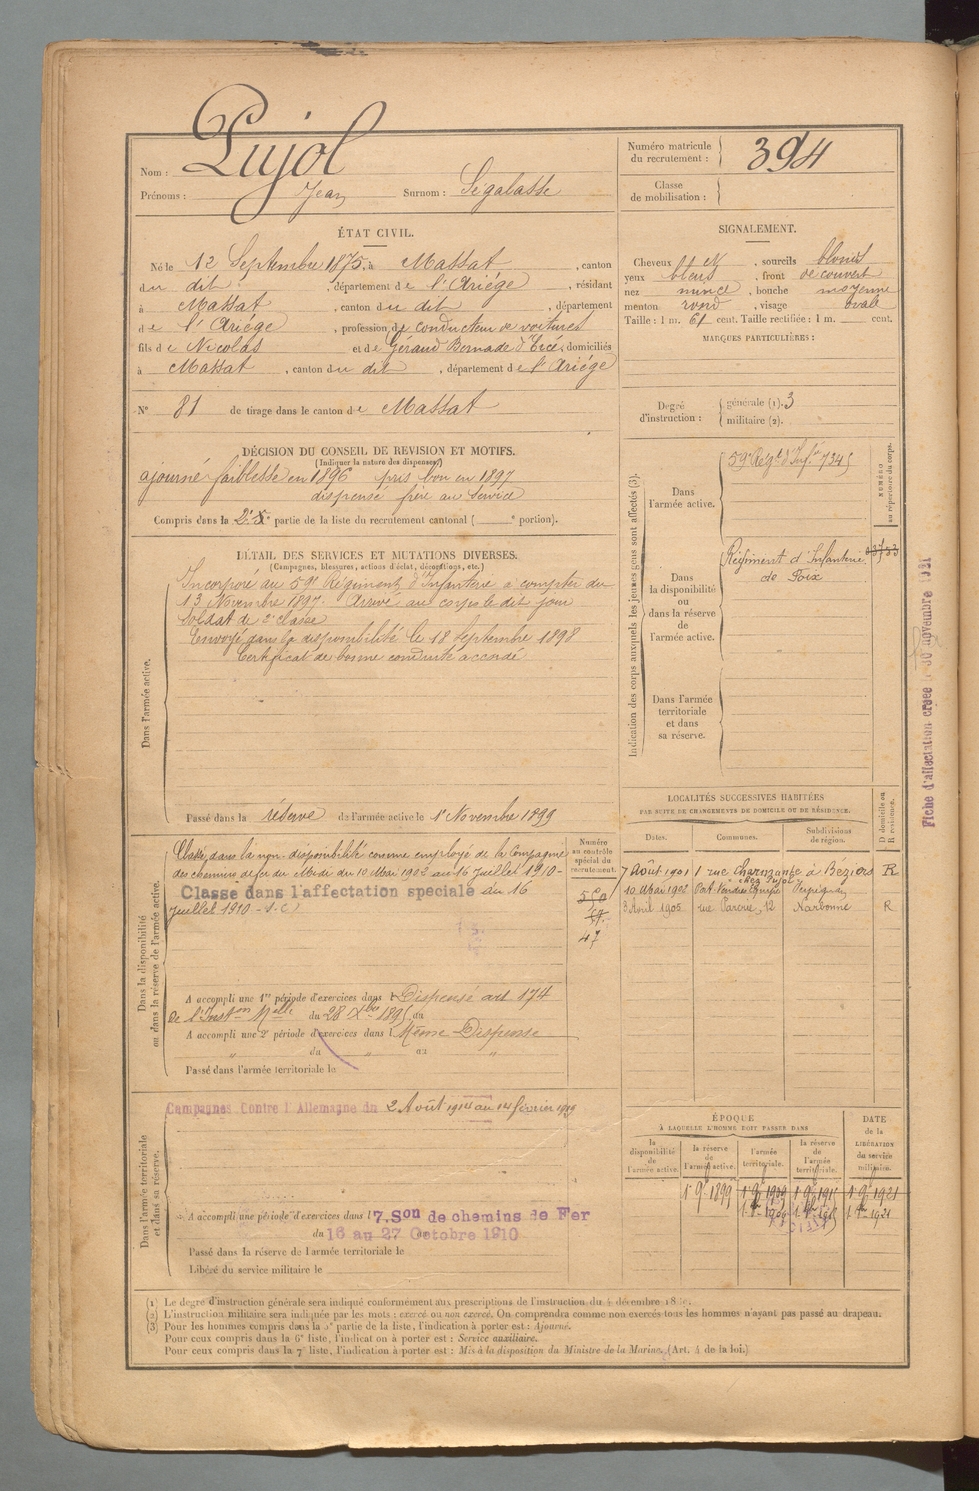 Nom : Pujol
Prénoms : Jean Surnom : Ségalasse
Numéro matricule du recrutement : 394
Classe de mobilisation :
ÉTAT CIVIL.
Né le 12 Septembre 1875, à Massat, canton
du dit, département de l'Ariège, résidant
à Massat, canton du dit, département
de l'Ariège, profession de conducteur de voitures
fils de Nicolas et de Géraud Bernade d'Ercé, domiciliés
à Massat, canton du dit, département de l'Ariège
N° 81 de tirage dans le canton de Massat
SIGNALEMENT.
Cheveux N, sourcils blonds
yeux bleus, front découvert
nez mince, bouche moyenne
menton rond, visage ovale
Taille : 1 m. 61 cent. Taille rectifiée : 1 m. cent.
MARQUES PARTICULIÈRES :
Degré d'instruction : générale (1). 3
militaire (2).
DÉCISION DU CONSEIL DE REVISION ET MOTIFS.
(Indiquer la nature des dispenses)
ajourné faiblesse en 1896 pris bon en 1897
dispensé frère au service
Compris dans la 2e partie de la liste du recrutement cantonal ( e portion).
DÉTAIL DES SERVICES ET MUTATIONS DIVERSES.
(Campagnes, blessures, actions d'éclat, décorations, etc.)
Dans l'armée active.
Incorporé au 59e Régiment d'Infanterie à compter du
13 Novembre 1897. Arrivé au corps le dit jour
Soldat de 2e classe
Envoyé dans la disponibilité le 18 Septembre 1898
Certificat de bonne conduite accordé
Passé dans la réserve de l'armée active le 1er Novembre 1899
Indication des corps auxquels les jeunes gens sont affectés (3).
NUMÉRO au répertoire du corps.
Dans l'armée active.
59e Régt d'Infie 7345
Dans la disponibilité ou dans la réserve de l'armée active.
Régiment d'Infanterie
de Foix
Dans l'armée territoriale et dans sa réserve.
LOCALITÉS SUCCESSIVES HABITÉES
PAR SUITE DE CHANGEMENTS DE DOMICILE OU DE RÉSIDENCE.
Dates. Communes. Subdivisions de région. D domicile ou R résidence.
7 Août 1901 1 rue Charmante à Béziers R
chez Pujol
10 Mai 1902 Port-Vendres Perpignan
3 Avril 1905 12 Narbonne R
Dans la disponibilité ou dans la réserve de l'armée active.
Numéro au contrôle spécial du recrutement.
Classé dans la non-disponibilité comme employé de la Compagnie
des chemins de fer du Midi du 10 Mai 1902 au 16 Juillet 1910 -
Classé dans l'affectation spéciale du 16
Juillet 1910 - S.C)
47
A accompli une 1re période d'exercices dans l Dispensé art 174
de l'Inston Melle du 28 Xbre 1895 au
A accompli une 2e période d'exercices dans l Même Dispense
du " au "
Passé dans l'armée territoriale le
Dans l'armée territoriale et dans sa réserve.
Campagnes Contre l'Allemagne du 2 Août 1914 au 14 février 1919
A accompli une période d'exercices dans l 7. Son de chemins de Fer
du 16 au 27 Octobre 1910
Passé dans la réserve de l'armée territoriale le
Libéré du service militaire le
ÉPOQUE
À LAQUELLE L'HOMME DOIT PASSER DANS
DATE de la LIBÉRATION du service militaire.
la disponibilité de l'armée active. la réserve de l'armée active. l'armée territoriale. la réserve de l'armée territoriale.
1 9bre 1899
Fiche d'affectation créée l 30 novembre 1921
(1) Le degré d'instruction générale sera indiqué conformément aux prescriptions de l'instruction du 4 décembre
(2) L'instruction militaire sera indiquée par les mots : exercé ou non exercé. On comprendra comme non exercés tous les hommes n'ayant pas passé au drapeau.
(3) Pour les hommes compris dans la partie de la liste, l'indication à porter est : Ajourné.
Pour ceux compris dans la 6e liste, l'indication à porter est : Service auxiliaire.
Pour ceux compris dans la 7e liste, l'indication à porter est : Mis à la disposition du Ministre de la Marine. (Art. 4 de la loi.)